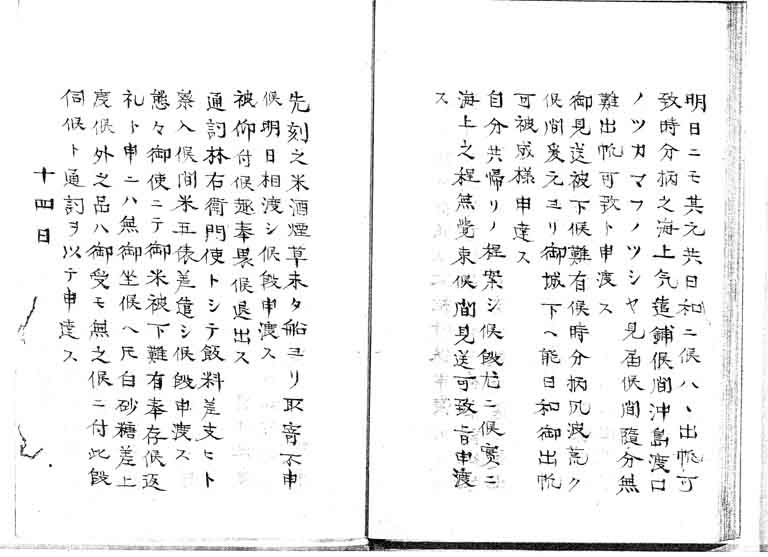 明日ニモ其元共日和ニ候ハヽ出帆可
致時分柄之海上気遣鋪候間沖島渡口
ノツカマフノツシヤ見届候間随分無
難出帆可致ト申渡ス
御見送被下候難有候時分柄風波荒ク
候間爰元ヨリ御城下ヘ能日和御出帆
可被成様申達ス
自分共帰リノ程案シ候段尤ニ候実ニ
海上之程無覚束候間見送可致旨申渡
ス
先刻之米酒煙草未タ船ヨリ取寄不申
候明日相渡シ候段申渡ス
被仰付候趣奉畏候退出ス
通詞林右衛門使トシテ飯料差支ヒト
察入候間米五俵差遣シ候段申渡ス
態々御使ニテ御米被下難有奉存候返
礼ト申ニハ無御坐候ヘ尺白砂糖差上
度候外之品ハ御受モ無之候ニ付此段
伺候ト通詞ヲ以テ申達ス
十四日